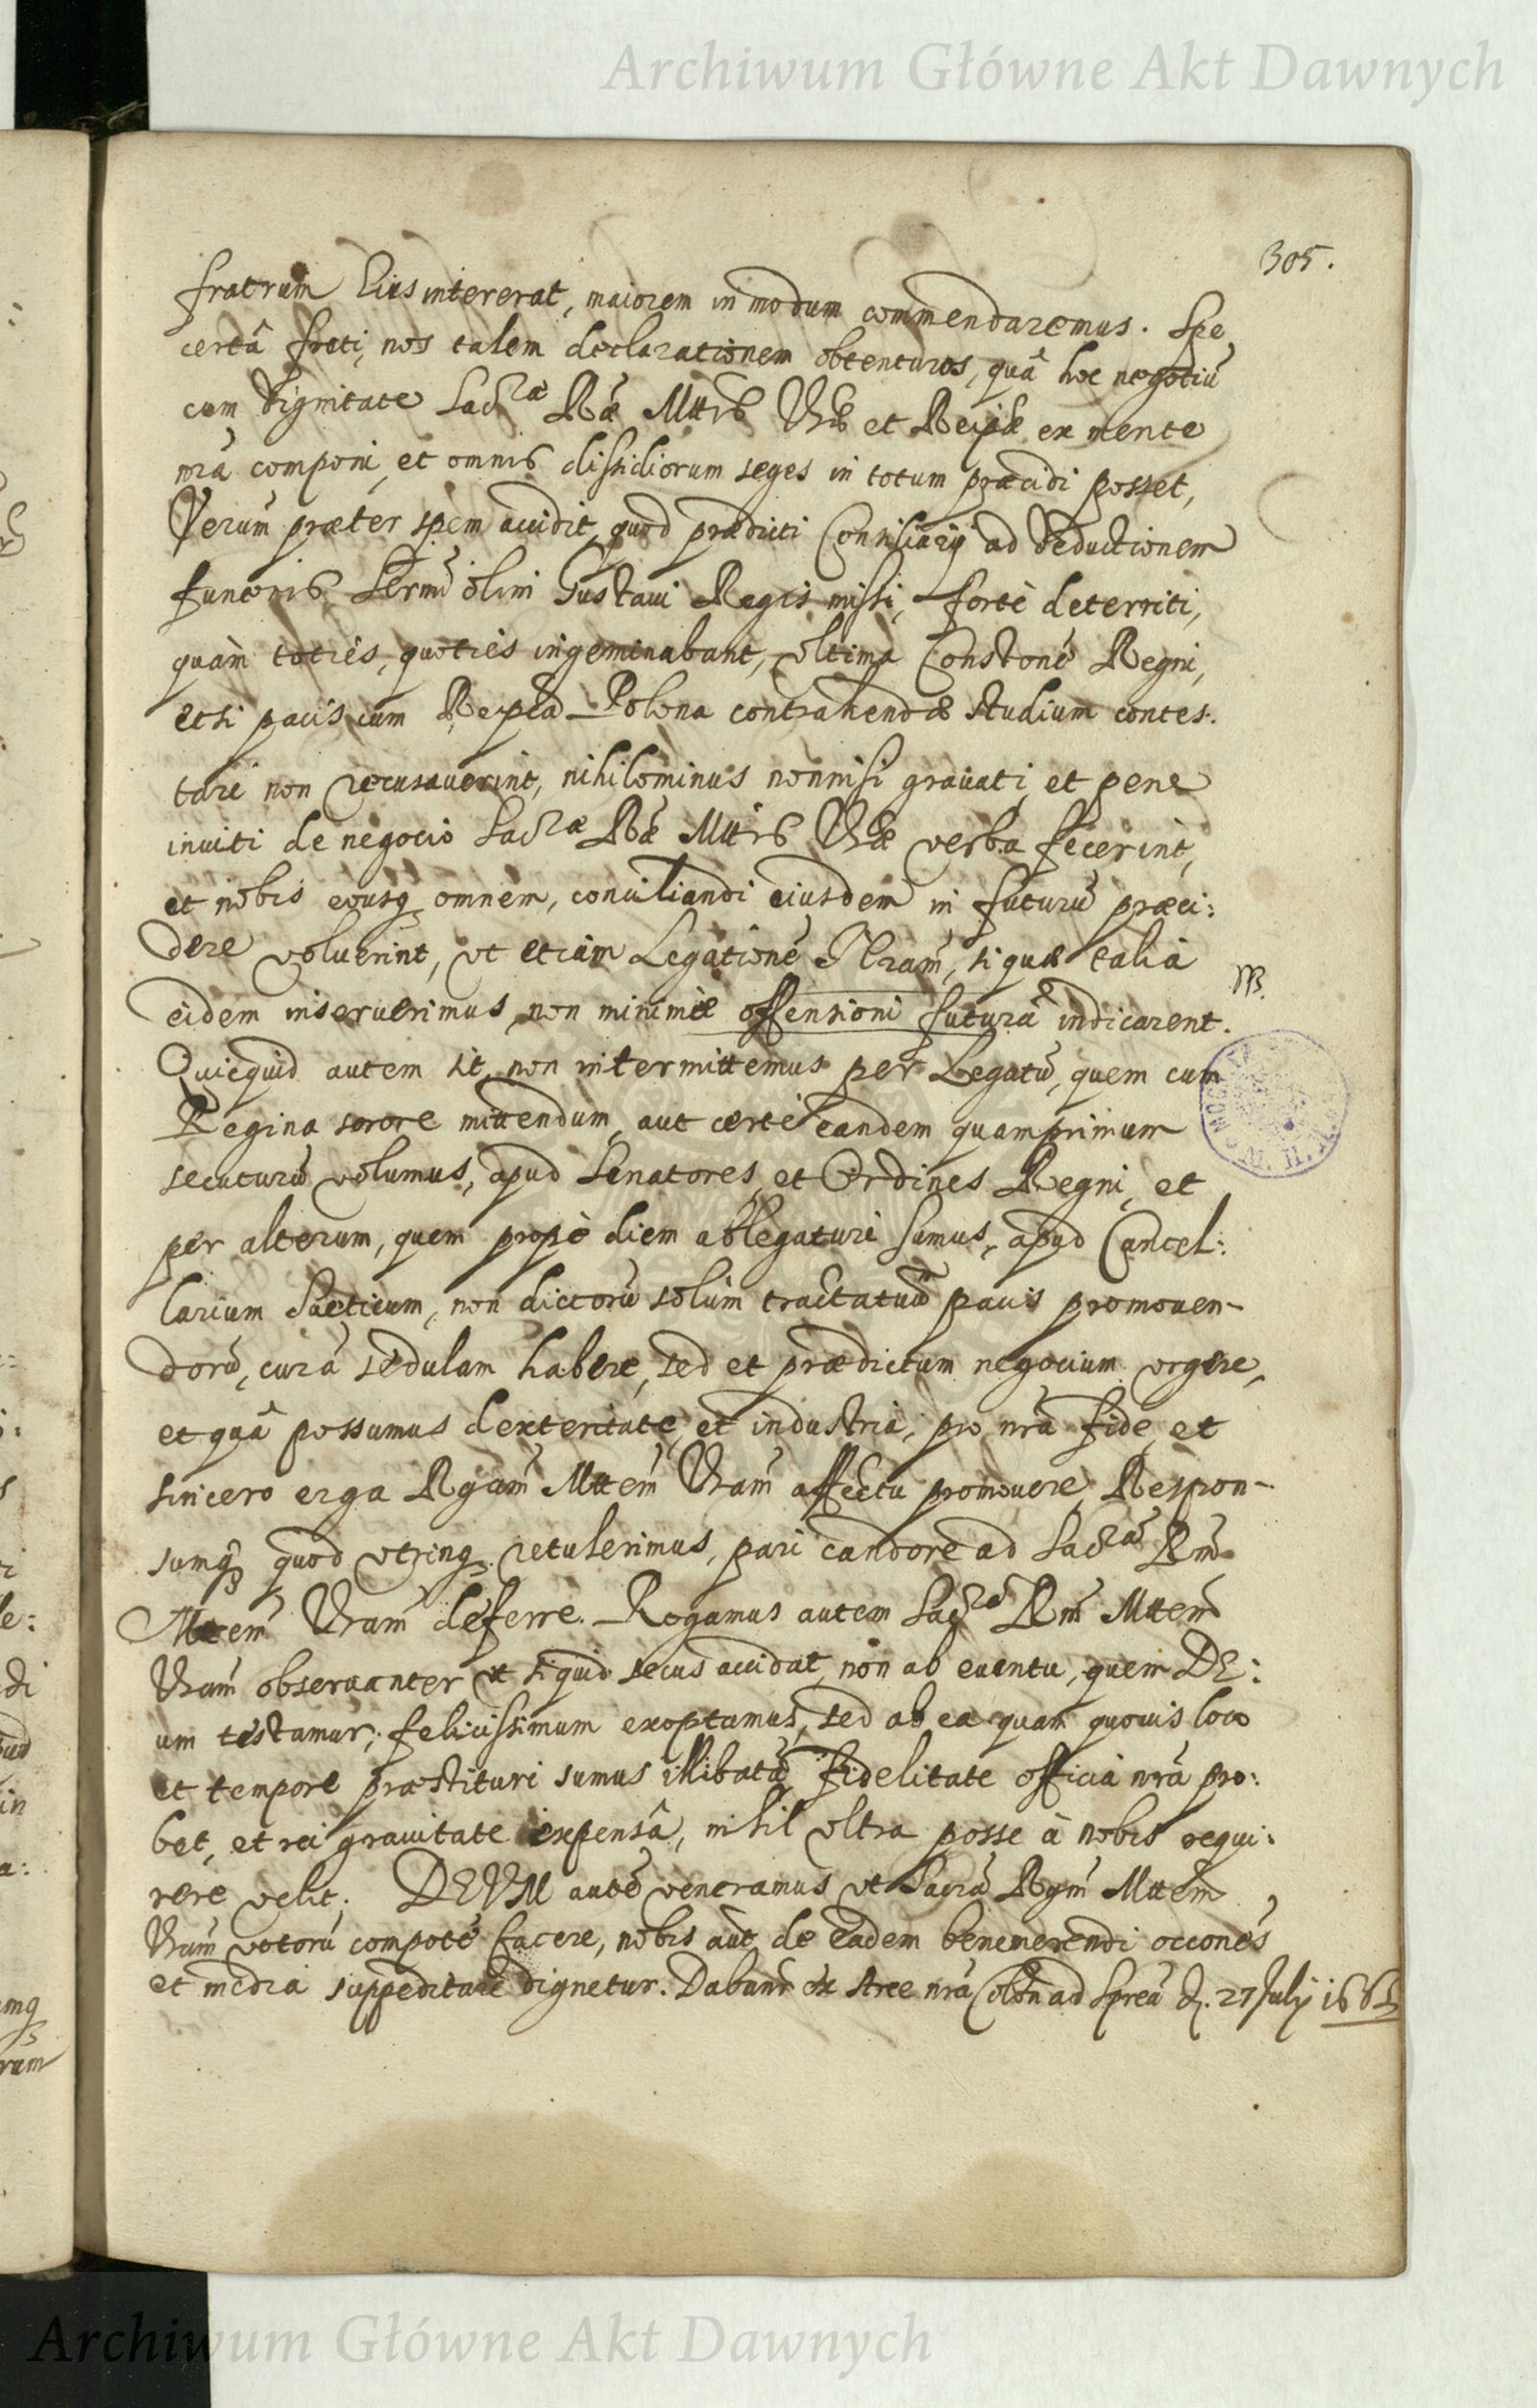 Archiwum Główne Akt Dawnych
305.
fratrum Eius intererat, maiorem in modum commendaremus. Spe
certâ freti, nos talem declarationem obtenturos, quâ hoc negotiũ
cum dignitate Sacrae Rae Mttis Vrae et Reipae ex mente
nrã componi, et omnis dissidiorum seges in totum praecidi posset,
Verum praeter spem accidit, quod praedicti Consiliarij ad deductionem
funeris Sermi olim Gustavi Regis missi, forte deterriti,
quam toties, quoties ingeminabant, ultima Constone Regni,
etsi pacis cum Repca Polona contrahendae studium contes.
tari non recusaverint, nihilominus nonnisi gravati, et pene
inviti de negocio Sacrae Rae Mttis Vrae verba fecerint,
et nobis eousq omnem, conciliandi eiusdem in futurũ praeci:
dere voluerint, ut etiam Legationẽ Nram, si quae talia
eidem inseruerimus, non minimae offensioni futurã indicarent.
NB.
Quicquid autem sit, non intermittemus per Legatũ, quem cum
Regina sorore mittendum, aut certe eandem quamprimum
secuturũ volumus, apud Senatores, et Ordines Regni, et
per alterum, quem propè diem ablegaturi sumus, apud Cancel:
larium Sueticum, non dictorũ solùm tractatuũ pacis promoven-
dorũ, curã sedulam habere, sed et praedictum negocium urgere,
et quâ possumus dexteritate, et industria, pro nrã fide, et
sincero erga Rgiam Mttem Vram affectu promovere, Respon-
sumq quod utrinq retulerimus, pari candore ad Sacram Rm
Mttem Vram deferre. Rogamus autem Sacram Rm Mttem
Vram observanter ut siquid secus accidat, non ab eventu, quem DE:
um testamur, felicissimum exoptamus, sed ab ea quam quovis loco
et tempore praestituri sumus illibatã fidelitate officia nrã pro:
bet, et rei gravitate expensâ, nihil ultra posse à nobis requi:
rere velit. DEVM autẽ veneramus ut Sacrã Rgm Mttem
Vram votorũ compotẽ facere, nobis aut de eadem benemerendi occones
et media suppeditare dignetur. Dabantr ex Arce nrã Coln ad Spreã d. 27 July 166
Archiwum Główne Akt Dawnych